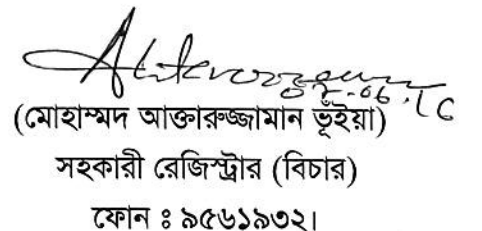 ০২.০৬.১৬
(মোহাম্মদ আক্তারুজ্জামান ভূঁইয়া)
সহকারী রেজিস্ট্রার (বিচার)
ফোন ঃ ৯৫৬১৯৩২।